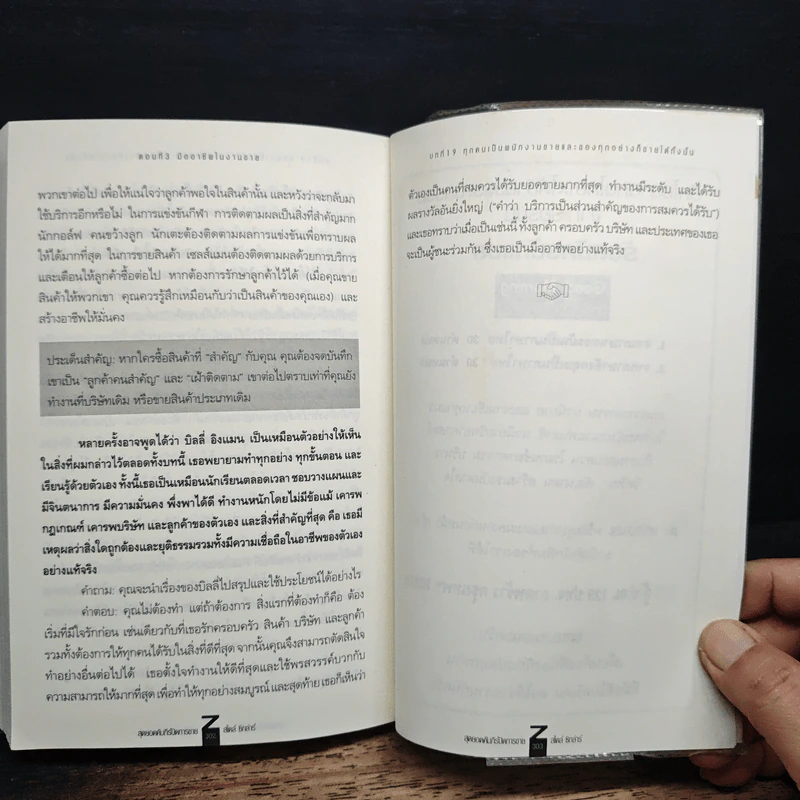 ตอนที่3 มืออาชีพในงานขาย
พวกเขาต่อไป เพื่อให้แน่ใจว่าลูกค้าพอใจในสินค้านั้น และหวังว่าจะกลับมา
ใช้บริการอีกหรือไม่ ในการแข่งขันกีฬา การติดตามผลเป็นสิ่งที่สำคัญมาก
นักกอล์ฟ คนขว้างลูก นักเตะต้องติดตามผลการแข่งขันเพื่อทราบผล
ให้ได้มากที่สุด ในการขายสินค้า เซลส์แมนต้องติดตามผลด้วยการบริการ
และเตือนให้ลูกค้าซื้อต่อไป หากต้องการรักษาลูกค้าไว้ได้ (เมื่อคุณขาย
สินค้าให้พวกเขา คุณควรรู้สึกเหมือนกับว่าเป็นสินค้าของคุณเอง) และ
สร้างอาชีพให้มั่นคง
ประเด็นสำคัญ: หากใครซื้อสินค้าที่ "สำคัญ" กับคุณ คุณต้องจดบันทึก
เขาเป็น "ลูกค้าคนสำคัญ" และ "เฝ้าติดตาม" เขาต่อไปตราบเท่าที่คุณยัง
ทำงานที่บริษัทเดิม หรือขายสินค้าประเภทเดิม
หลายครั้งอาจพูดได้ว่า บิลลี่ อิงแมน เป็นเหมือนตัวอย่างให้เห็น
ในสิ่งที่ผมกล่าวไว้ตลอดทั้งบทนี้ เธอพยายามทำทุกอย่าง ทุกขั้นตอน และ
เรียนรู้ด้วยตัวเอง ทั้งนี้เธอเป็นเหมือนนักเรียนตลอดเวลา ชอบวางแผนและ
มีจินตนาการ มีความมั่นคง พึ่งพาได้ดี ทำงานหนักโดยไม่มีข้อแม้ เคารพ
กฎเกณฑ์ เคารพบริษัท และลูกค้าของตัวเอง และสิ่งที่สำคัญที่สุด คือ เธอมี
เหตุผลว่าสิ่งใดถูกต้องและยุติธรรมรวมทั้งมีความเชื่อถือในอาชีพของตัวเอง
อย่างแท้จริง
คำถาม: คุณจะนำเรื่องของบิลลี่ไปสรุปและใช้ประโยชน์ได้อย่างไร
คำตอบ: คุณไม่ต้องทำ แต่ถ้าต้องการ สิ่งแรกที่ต้องทำก็คือ ต้อง
เริ่มที่มีใจรักก่อน เช่นเดียวกับที่เธอรักครอบครัว สินค้า บริษัท และลูกค้า
รวมทั้งต้องการให้ทุกคนได้รับในสิ่งที่ดีที่สุด จากนั้นคุณจึงสามารถตัดสินใจ
ทำอย่างอื่นต่อไปได้ เธอตั้งใจทำงานให้ดีที่สุดและใช้พรสวรรค์บวกกับ
ความสามารถให้มากที่สุด เพื่อทำให้ทุกอย่างสมบูรณ์ และสุดท้าย เธอก็เห็นว่า
สุดยอดคัมภีร์ปิดการขาย Z 302 สไตล์ ซิกล่าร์
บทที่19 ทุกคนเป็นพนักงานขายและของทุกอย่างก็ขายได้ทั้งนั้น
ตัวเองเป็นคนที่สมควรได้รับยอดขายมากที่สุด ทำงานมีระดับ และได้รับ
ผลรางวัลอันยิ่งใหญ่ ("คำว่า บริการเป็นส่วนสำคัญของการสมควรได้รับ")
และเธอทราบว่าเมื่อเป็นเช่นนี้ ทั้งลูกค้า ครอบครัว บริษัท และประเทศของเธอ
จะเป็นผู้ชนะร่วมกัน ซึ่งเธอเป็นมืออาชีพอย่างแท้จริง
สุดยอดคัมภีร์ปิดการขาย Z 303 สไตล์ ซิกล่าร์